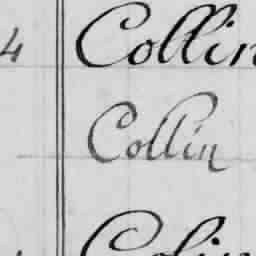 4 Collin
Collin
Colin